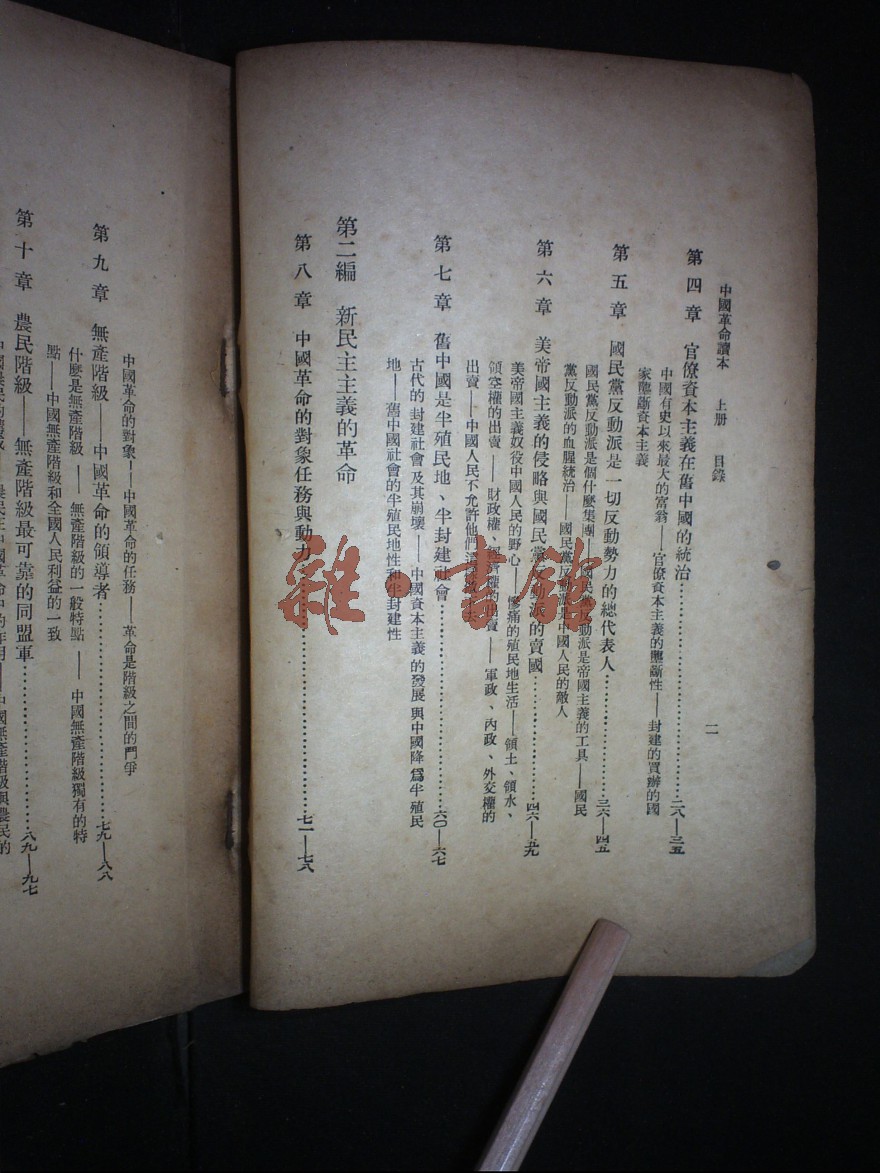 中國革命讀本　上册　目錄
二
第四章　官僚資本主義在舊中國的統治……二八—三五
中國有史以來最大的富翁——官僚資本主義的壟斷性——封建的買辦的國
家壟斷資本主義
第五章　國民黨反動派是一切反動勢力的總代表人……三六—四五
國民黨反動派是個什麼集團——國民黨反動派是帝國主義的工具——國民
黨反動派的血腥統治——國民黨反動派是中國人民的敵人
第六章　美帝國主義的侵略與國民黨反動派的賣國……四六—五九
美帝國主義奴役中國人民的野心——慘痛的殖民地生活——領土、領水、
領空權的出賣——財政權、經濟權的出賣——軍政、內政、外交權的
出賣——中國人民不允許他們
第七章　舊中國是半殖民地、半封建社會……六〇—六七
古代的封建社會及其崩壞——中國資本主義的發展與中國降爲半殖民
地——舊中國社會的半殖民地性和半封建性
第二編　新民主主義的革命
第八章　中國革命的對象任務與動力……七一—七八
中國革命的對象——中國革命的任務——革命是階級之間的鬥爭
第九章　無產階級——中國革命的領導者……七九—八八
什麼是無產階級——無產階級的一般特點——中國無產階級獨有的特
點——中國無產階級和全國人民利益的一致
第十章　農民階級——無產階級最可靠的同盟軍……八九—九七
雜·書館